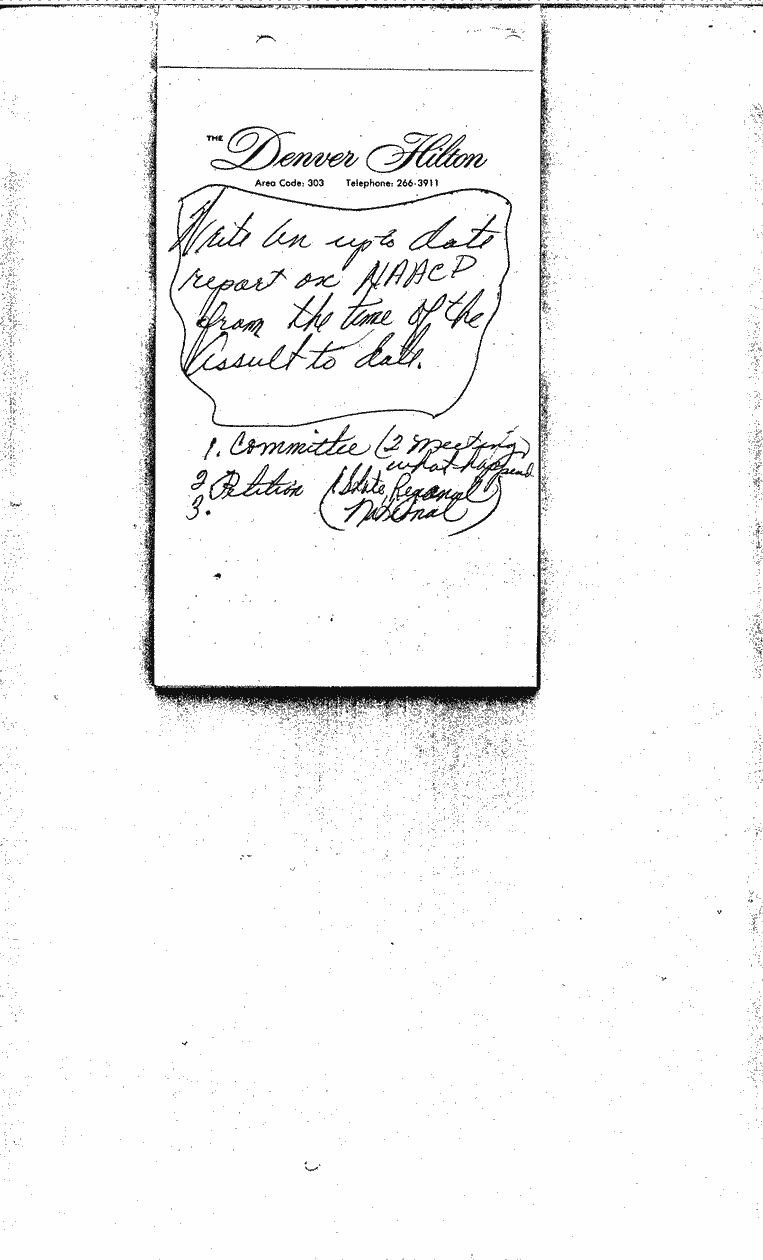 THE Denver Hilton
Area Code: 303 Telephone: 266-3911
Write an up to date
report on NAACP
from the time of the
Assult to date.
1. Committee (2 meeting)
what happend
2 Petition (State, Regional
3. National)